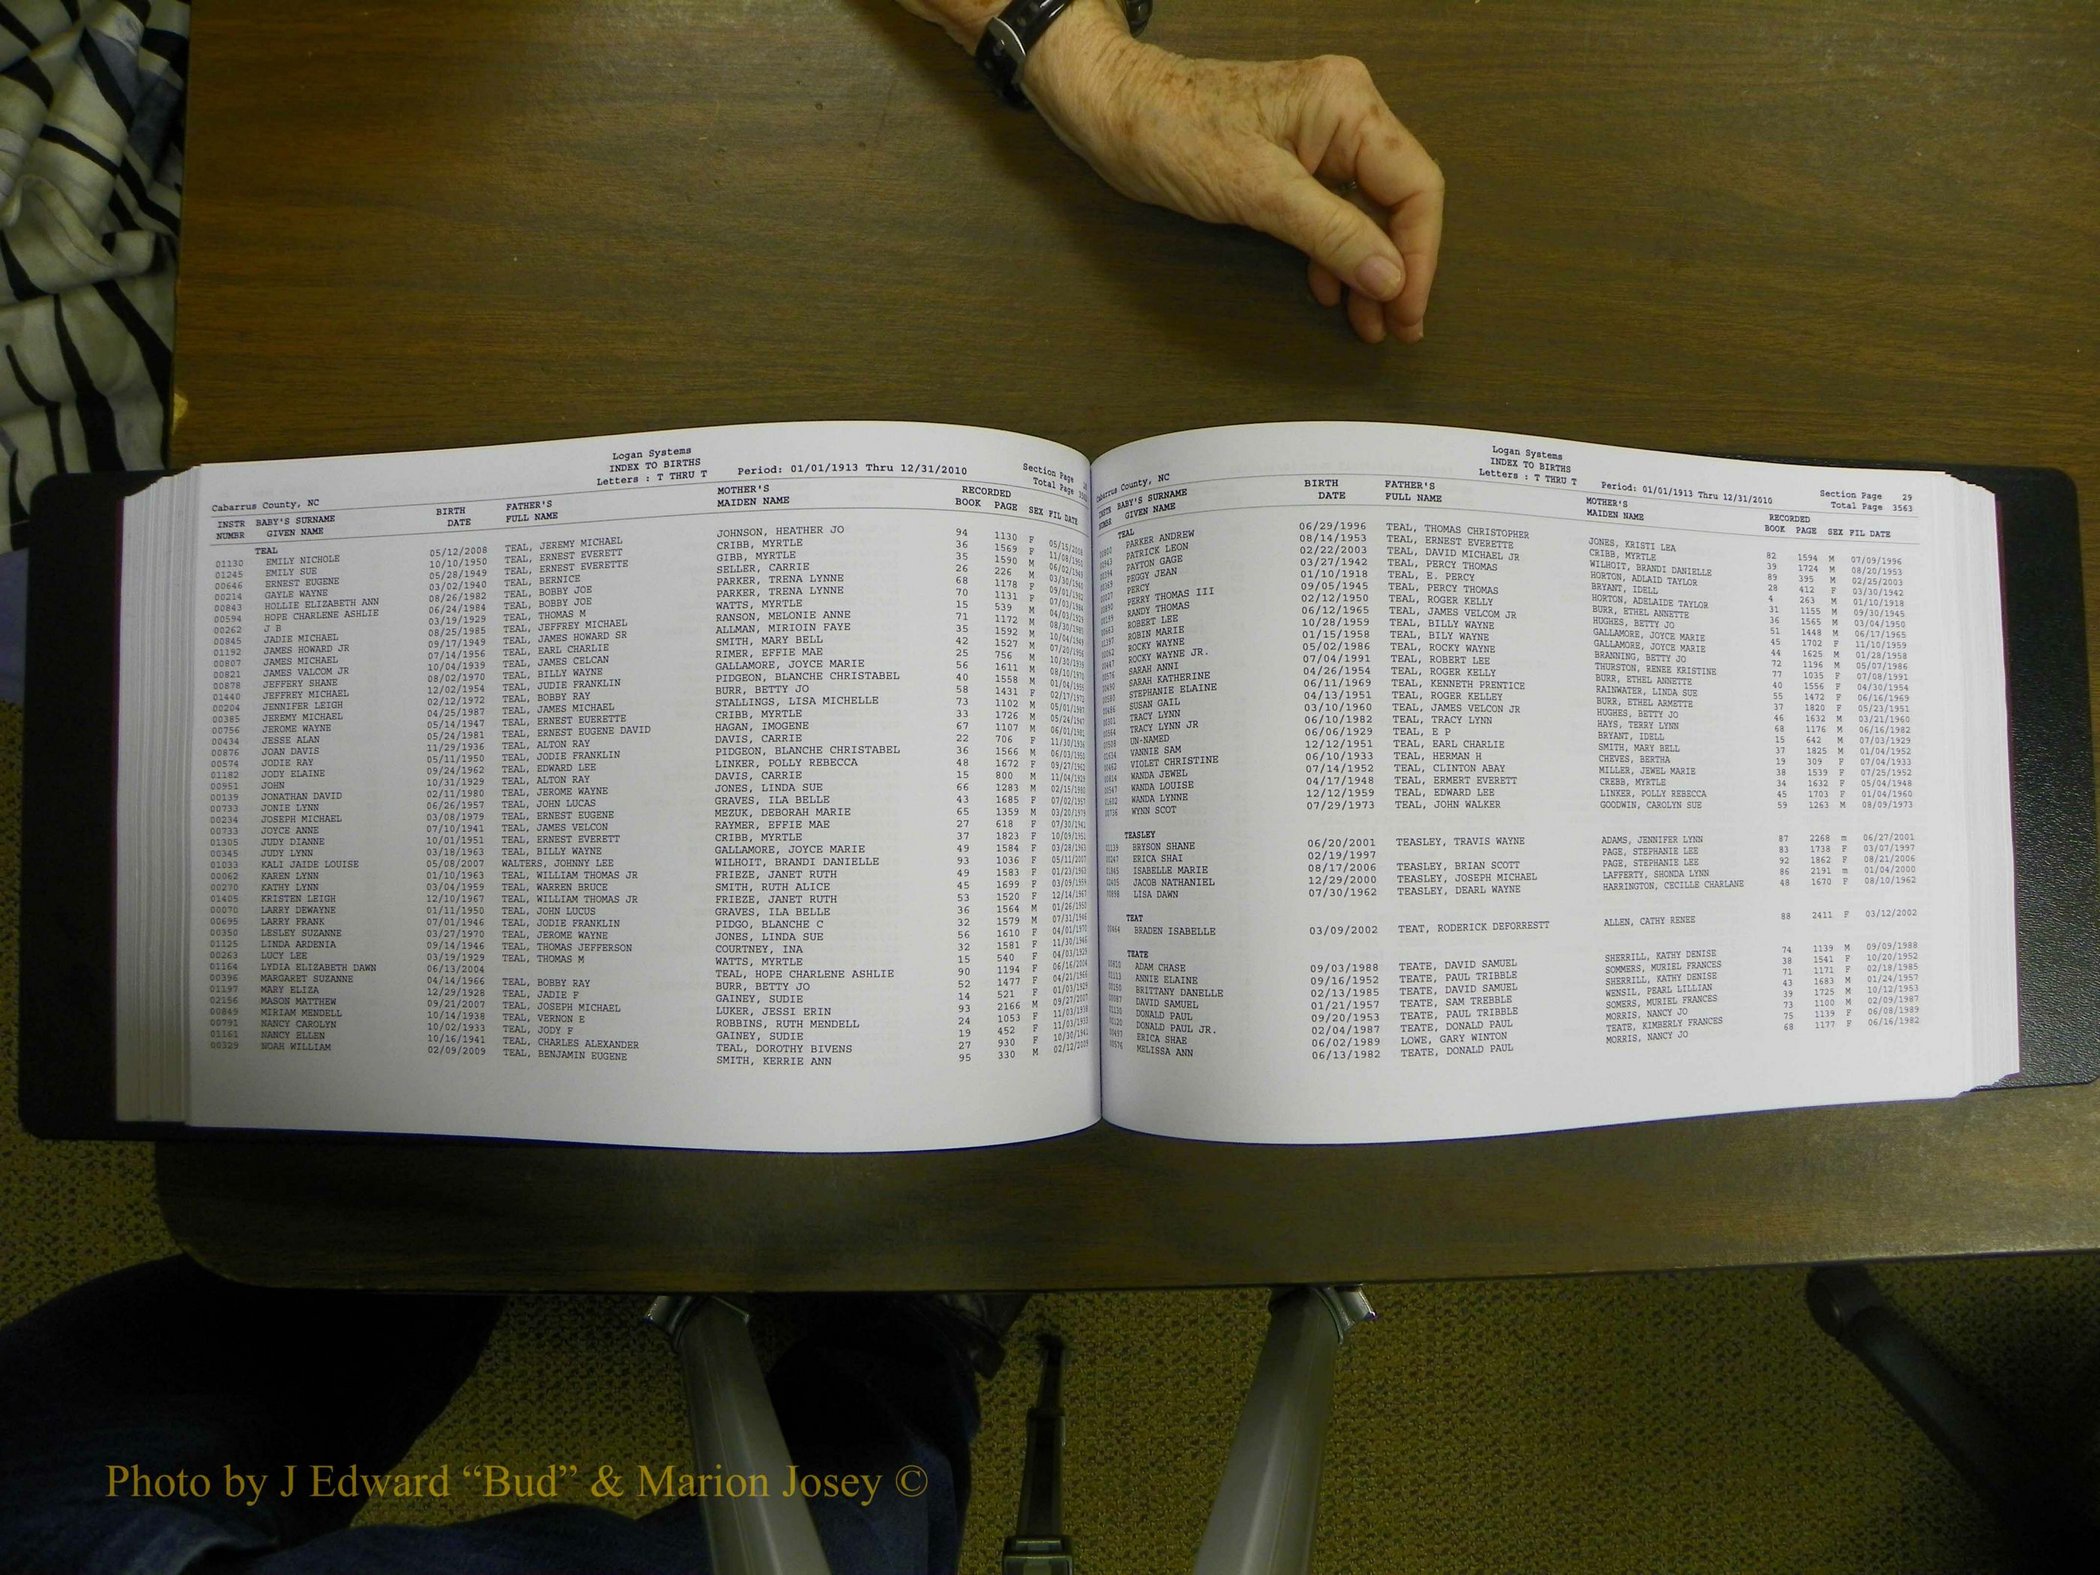 Logan Systems
INDEX TO BIRTHS
Letters : T THRU T
Period: 01/01/1913 Thru 12/31/2010
Section Page
Total Page
Cabarrus County, NC
INSTR BABY'S SURNAME BIRTH FATHER'S MOTHER'S RECORDED
NUMBR GIVEN NAME DATE FULL NAME MAIDEN NAME BOOK PAGE SEX FIL DATE
TEAL
01130 EMILY NICHOLE 05/12/2008 TEAL, JEREMY MICHAEL JOHNSON, HEATHER JO 94 1130 F 05/15/2008
01245 EMILY SUE 10/10/1950 TEAL, ERNEST EVERETT CRIBB, MYRTLE 36 1569 F 11/08/1950
00646 ERNEST EUGENE 05/28/1949 TEAL, ERNEST EVERETTE GIBB, MYRTLE 35 1590 M 06/02/1949
00214 GAYLE WAYNE 03/02/1940 TEAL, BERNICE SELLER, CARRIE 26 226 M 03/30/1940
00843 HOLLIE ELIZABETH ANN 08/26/1982 TEAL, BOBBY JOE PARKER, TRENA LYNNE 68 1178 F 09/01/1982
00594 HOPE CHARLENE ASHLIE 06/24/1984 TEAL, BOBBY JOE PARKER, TRENA LYNNE 70 1131 F 07/03/1984
00262 J B 03/19/1929 TEAL, THOMAS M WATTS, MYRTLE 15 539 M 04/03/1929
00845 JADIE MICHAEL 08/25/1985 TEAL, JEFFREY MICHAEL RANSON, MELONIE ANNE 71 1172 M 08/30/1985
01192 JAMES HOWARD JR 09/17/1949 TEAL, JAMES HOWARD SR ALLMAN, MIRIOIN FAYE 35 1592 M 10/04/1949
00807 JAMES MICHAEL 07/14/1956 TEAL, EARL CHARLIE SMITH, MARY BELL 42 1527 M 07/20/1956
00821 JAMES VALCOM JR 10/04/1939 TEAL, JAMES CELCAN RIMER, EFFIE MAE 25 756 M 10/30/1939
00878 JEFFERY SHANE 08/02/1970 TEAL, BILLY WAYNE GALLAMORE, JOYCE MARIE 56 1611 M 08/10/1970
01440 JEFFREY MICHAEL 12/02/1954 TEAL, JUDIE FRANKLIN PIDGEON, BLANCHE CHRISTABEL 40 1558 M 01/04/1955
00204 JENNIFER LEIGH 02/12/1972 TEAL, BOBBY RAY BURR, BETTY JO 58 1431 F 02/17/1972
00385 JEREMY MICHAEL 04/25/1987 TEAL, JAMES MICHAEL STALLINGS, LISA MICHELLE 73 1102 M 05/01/1987
00756 JEROME WAYNE 05/14/1947 TEAL, ERNEST EUERETTE CRIBB, MYRTLE 33 1726 M 05/24/1947
00434 JESSE ALAN 05/24/1981 TEAL, ERNEST EUGENE DAVID HAGAN, IMOGENE 67 1107 M 06/01/1981
00876 JOAN DAVIS 11/29/1936 TEAL, ALTON RAY DAVIS, CARRIE 22 706 F 11/30/1936
00574 JODIE RAY 05/11/1950 TEAL, JODIE FRANKLIN PIDGEON, BLANCHE CHRISTABEL 36 1566 M 06/03/1950
01182 JODY ELAINE 09/24/1962 TEAL, EDWARD LEE LINKER, POLLY REBECCA 48 1672 F 09/27/1962
00951 JOHN 10/31/1929 TEAL, ALTON RAY DAVIS, CARRIE 15 800 M 11/04/1929
00139 JONATHAN DAVID 02/11/1980 TEAL, JEROME WAYNE JONES, LINDA SUE 66 1283 M 02/15/1980
00733 JONIE LYNN 06/26/1957 TEAL, JOHN LUCAS GRAVES, ILA BELLE 43 1685 F 07/02/1957
00234 JOSEPH MICHAEL 03/08/1979 TEAL, ERNEST EUGENE MEZUK, DEBORAH MARIE 65 1359 M 03/20/1979
00733 JOYCE ANNE 07/10/1941 TEAL, JAMES VELCON RAYMER, EFFIE MAE 27 618 F 07/30/1941
01305 JUDY DIANNE 10/01/1951 TEAL, ERNEST EVERETT CRIBB, MYRTLE 37 1823 F 10/09/1951
00345 JUDY LYNN 03/18/1963 TEAL, BILLY WAYNE GALLAMORE, JOYCE MARIE 49 1584 F 03/28/1963
01033 KALI JAIDE LOUISE 05/08/2007 WALTERS, JOHNNY LEE WILHOIT, BRANDI DANIELLE 93 1036 F 05/11/2007
00062 KAREN LYNN 01/10/1963 TEAL, WILLIAM THOMAS JR FRIEZE, JANET RUTH 49 1583 F 01/23/1963
00270 KATHY LYNN 03/04/1959 TEAL, WARREN BRUCE SMITH, RUTH ALICE 45 1699 F 03/09/1959
01405 KRISTEN LEIGH 12/10/1967 TEAL, WILLIAM THOMAS JR FRIEZE, JANET RUTH 53 1520 F 12/14/1967
00070 LARRY DEWAYNE 01/11/1950 TEAL, JOHN LUCUS GRAVES, ILA BELLE 36 1564 M 01/26/1950
00695 LARRY FRANK 07/01/1946 TEAL, JODIE FRANKLIN PIDGO, BLANCHE C 32 1579 M 07/31/1946
00350 LESLEY SUZANNE 03/27/1970 TEAL, JEROME WAYNE JONES, LINDA SUE 56 1610 F 04/01/1970
01125 LINDA ARDENIA 09/14/1946 TEAL, THOMAS JEFFERSON COURTNEY, INA 32 1581 F 11/30/1946
00263 LUCY LEE 03/19/1929 TEAL, THOMAS M WATTS, MYRTLE 15 540 F 04/03/1929
01164 LYDIA ELIZABETH DAWN 06/13/2004 TEAL, HOPE CHARLENE ASHLIE 90 1194 F 06/16/2004
00396 MARGARET SUZANNE 04/14/1966 TEAL, BOBBY RAY BURR, BETTY JO 52 1477 F 04/21/1966
01197 MARY ELIZA 12/29/1928 TEAL, JADIE F GAINEY, SUDIE 14 521 F 01/03/1929
02156 MASON MATTHEW 09/21/2007 TEAL, JOSEPH MICHAEL LUKER, JESSI ERIN 93 2166 M 09/27/2007
00849 MIRIAM MENDELL 10/14/1938 TEAL, VERNON E ROBBINS, RUTH MENDELL 24 1053 F 11/03/1938
00791 NANCY CAROLYN 10/02/1933 TEAL, JODY F GAINEY, SUDIE 19 452 F 11/03/1933
01161 NANCY ELLEN 10/16/1941 TEAL, CHARLES ALEXANDER TEAL, DOROTHY BIVENS 27 930 F 10/30/1941
00329 NOAH WILLIAM 02/09/2009 TEAL, BENJAMIN EUGENE SMITH, KERRIE ANN 95 330 M 02/12/2009
Logan Systems
INDEX TO BIRTHS
Letters : T THRU T
Period: 01/01/1913 Thru 12/31/2010
Section Page 29
Total Page 3563
Cabarrus County, NC
INSTR BABY'S SURNAME BIRTH FATHER'S MOTHER'S RECORDED
NUMBR GIVEN NAME DATE FULL NAME MAIDEN NAME BOOK PAGE SEX FIL DATE
TEAL
PARKER ANDREW 06/29/1996 TEAL, THOMAS CHRISTOPHER JONES, KRISTI LEA 82 1594 M 07/09/1996
PATRICK LEON 08/14/1953 TEAL, ERNEST EVERETTE CRIBB, MYRTLE 39 1724 M 08/20/1953
PAYTON GAGE 02/22/2003 TEAL, DAVID MICHAEL JR WILHOIT, BRANDI DANIELLE 89 395 M 02/25/2003
PEGGY JEAN 03/27/1942 TEAL, PERCY THOMAS HORTON, ADLAID TAYLOR 28 412 F 03/30/1942
PERCY 01/10/1918 TEAL, E. PERCY BRYANT, IDELL 4 263 M 01/10/1918
PERRY THOMAS III 09/05/1945 TEAL, PERCY THOMAS HORTON, ADELAIDE TAYLOR 31 1155 M 09/30/1945
RANDY THOMAS 02/12/1950 TEAL, ROGER KELLY BURR, ETHEL ANNETTE 36 1565 M 03/04/1950
ROBERT LEE 06/12/1965 TEAL, JAMES VELCOM JR HUGHES, BETTY JO 51 1448 M 06/17/1965
ROBIN MARIE 10/28/1959 TEAL, BILLY WAYNE GALLAMORE, JOYCE MARIE 45 1702 F 11/10/1959
ROCKY WAYNE 01/15/1958 TEAL, BILY WAYNE GALLAMORE, JOYCE MARIE 44 1625 M 01/28/1958
ROCKY WAYNE JR. 05/02/1986 TEAL, ROCKY WAYNE BRANNING, BETTY JO 72 1196 M 05/07/1986
SARAH ANNI 07/04/1991 TEAL, ROBERT LEE THURSTON, RENEE KRISTINE 77 1035 F 07/08/1991
SARAH KATHERINE 04/26/1954 TEAL, ROGER KELLY BURR, ETHEL ANNETTE 40 1556 F 04/30/1954
STEPHANIE ELAINE 06/11/1969 TEAL, KENNETH PRENTICE RAINWATER, LINDA SUE 55 1472 F 06/16/1969
SUSAN GAIL 04/13/1951 TEAL, ROGER KELLEY BURR, ETHEL ARMETTE 37 1820 F 05/23/1951
TRACY LYNN 03/10/1960 TEAL, JAMES VELCON JR HUGHES, BETTY JO 46 1632 M 03/21/1960
TRACY LYNN JR 06/10/1982 TEAL, TRACY LYNN HAYS, TERRY LYNN 68 1176 M 06/16/1982
UN-NAMED 06/06/1929 TEAL, E P BRYANT, IDELL 15 642 M 07/03/1929
VANNIE SAM 12/12/1951 TEAL, EARL CHARLIE SMITH, MARY BELL 37 1825 M 01/04/1952
VIOLET CHRISTINE 06/10/1933 TEAL, HERMAN H CHEVES, BERTHA 19 309 F 07/04/1933
WANDA JEWEL 07/14/1952 TEAL, CLINTON ABAY MILLER, JEWEL MARIE 38 1539 F 07/25/1952
WANDA LOUISE 04/17/1948 TEAL, ERMERT EVERETT CREBB, MYRTLE 34 1632 F 05/04/1948
WANDA LYNNE 12/12/1959 TEAL, EDWARD LEE LINKER, POLLY REBECCA 45 1703 F 01/04/1960
WYNN SCOT 07/29/1973 TEAL, JOHN WALKER GOODWIN, CAROLYN SUE 59 1263 M 08/09/1973
TEASLEY
BRYSON SHANE 06/20/2001 TEASLEY, TRAVIS WAYNE ADAMS, JENNIFER LYNN 87 2268 m 06/27/2001
ERICA SHAI 02/19/1997 PAGE, STEPHANIE LEE 83 1738 F 03/07/1997
ISABELLE MARIE 08/17/2006 TEASLEY, BRIAN SCOTT PAGE, STEPHANIE LEE 92 1862 F 08/21/2006
JACOB NATHANIEL 12/29/2000 TEASLEY, JOSEPH MICHAEL LAFFERTY, SHONDA LYNN 86 2191 m 01/04/2000
LISA DAWN 07/30/1962 TEASLEY, DEARL WAYNE HARRINGTON, CECILLE CHARLANE 48 1670 F 08/10/1962
TEAT
BRADEN ISABELLE 03/09/2002 TEAT, RODERICK DEFORRESTT ALLEN, CATHY RENEE 88 2411 F 03/12/2002
TEATE
ADAM CHASE 09/03/1988 TEATE, DAVID SAMUEL SHERRILL, KATHY DENISE 74 1139 M 09/09/1988
ANNIE ELAINE 09/16/1952 TEATE, PAUL TRIBBLE SOMMERS, MURIEL FRANCES 38 1541 F 10/20/1952
BRITTANY DANELLE 02/13/1985 TEATE, DAVID SAMUEL SHERRILL, KATHY DENISE 71 1171 F 02/18/1985
DAVID SAMUEL 01/21/1957 TEATE, SAM TREBBLE WENSIL, PEARL LILLIAN 43 1683 M 01/24/1957
DONALD PAUL 09/20/1953 TEATE, PAUL TRIBBLE SOMERS, MURIEL FRANCES 39 1725 M 10/12/1953
DONALD PAUL JR. 02/04/1987 TEATE, DONALD PAUL MORRIS, NANCY JO 73 1100 M 02/09/1987
ERICA SHAE 06/02/1989 LOWE, GARY WINTON TEATE, KIMBERLY FRANCES 75 1139 F 06/08/1989
MELISSA ANN 06/13/1982 TEATE, DONALD PAUL MORRIS, NANCY JO 68 1177 F 06/16/1982
Photo by J Edward “Bud” & Marion Josey ©